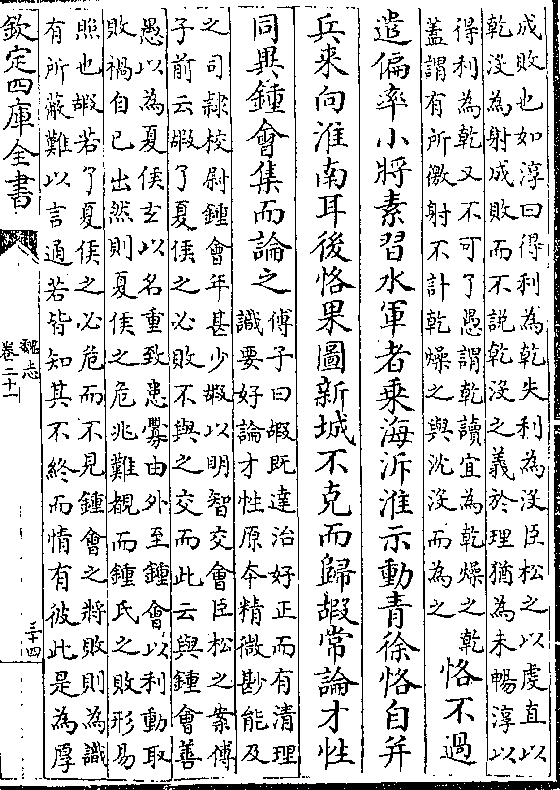 成敗也如淳曰得利為乾失利為没臣松之以虔直以
乾没為射成敗而不說乾没之義於理猶為未暢淳以
得利為乾又不可了愚謂乾讀宜為乾燥之乾
蓋謂有所徼射不計乾燥之與沈没而為之
恪不過
遣偏率小將素習水軍者乘海泝淮示動青徐恪自并
兵來向淮南耳後恪果圖新城不克而歸嘏常論才性
同異鍾會集而論之
傅子曰嘏既達治好正而有清理
識要好論才性原本精微尠能及
之司隷校尉鍾會年甚少嘏以明智交會臣松之案傅
子前云嘏了夏侯之必敗不與之交而此云與鍾會善
愚以為夏侯玄以名重致患釁由外至鍾會以利動取
敗禍自已出然則夏侯之危兆難覩而鍾氏之敗形易
照也嘏若了夏侯之必危而不見鍾會之將敗則為識
有所蔽難以言通若皆知其不終而情有彼此是為厚
欽定四庫全書
魏志
卷二十一
三十四